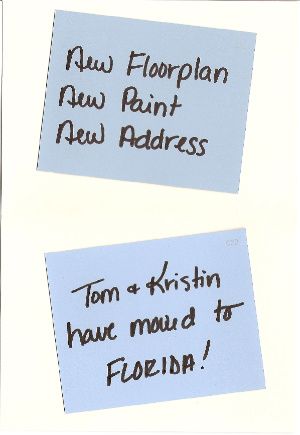 New Floorplan
New Paint
New Address
Tom & Kristin
have moved to
FLORIDA!